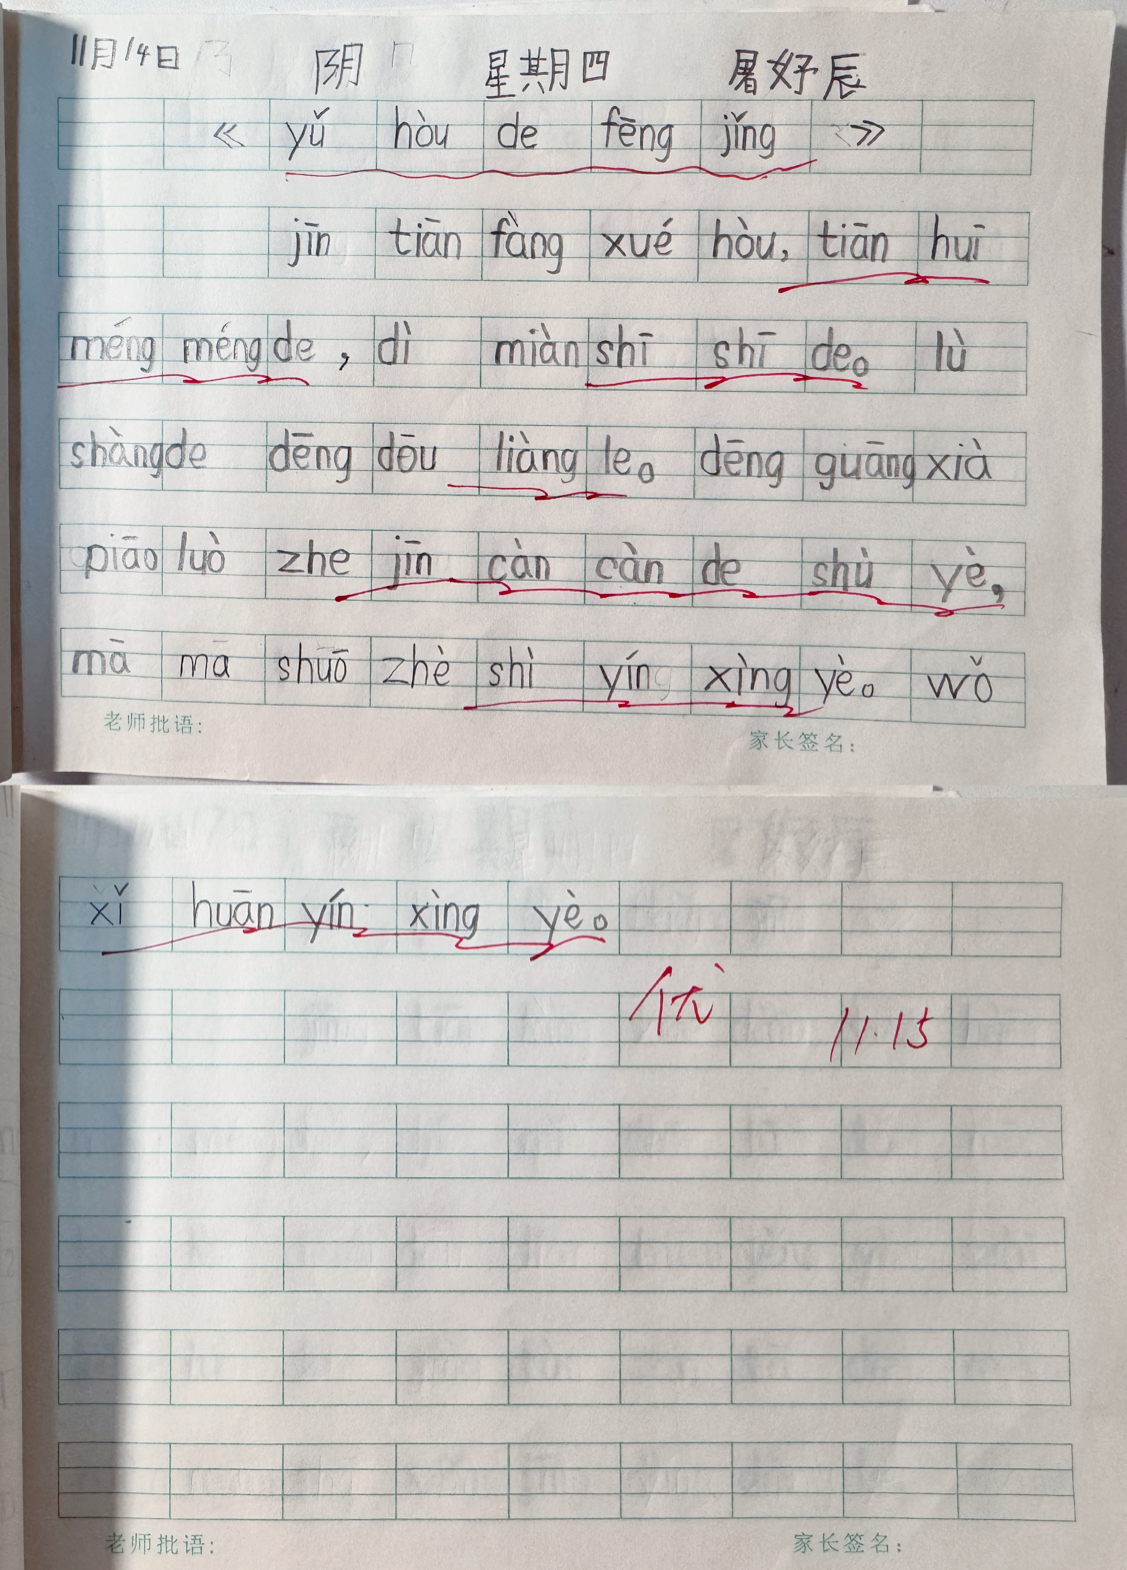 11月14日 阴 星期四 暑好辰
《 yǔ hòu de fēng jǐng 》
jīn tiān fàng xué hòu, tiān huī
méng méng de , dì miàn shī shī de。 lù
shàng de dēng dōu liàng le。 dēng guāng xià
piāo luò zhe jīn càn càn de shù yè,
mā ma shuō zhè shì yín xìng yè。 wǒ
老师批语: 家长签名:
xǐ huān yín xìng yè。
优 11.15
老师批语: 家长签名: